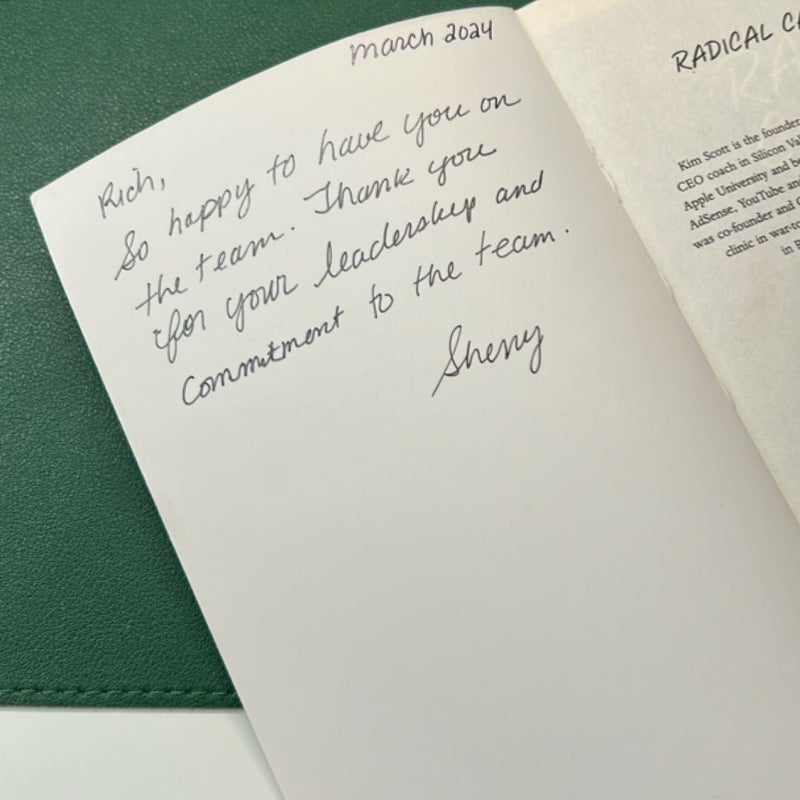 March 2024
Rich,
So happy to have you on
the team. Thank you
for your leadership and
Commitment to the team.
Sherry
RADICAL CA
Kim Scott is the founder
CEO coach in Silicon Val
Apple University and be
AdSense, YouTube and
was co-founder and C
clinic in war-to
in